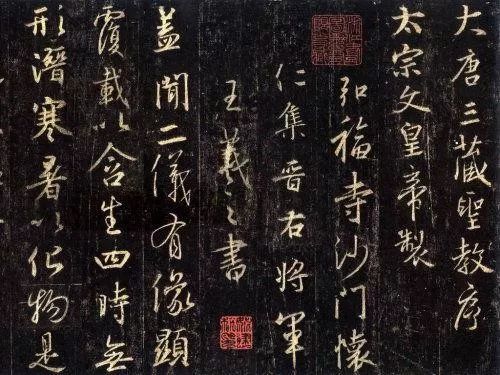 大唐三藏聖教序
太宗文皇帝製
弘福寺沙門懷
仁集晋右將軍
王羲之書
蓋聞二儀有像顯
覆載以含生四時無
形潛寒暑以化物是